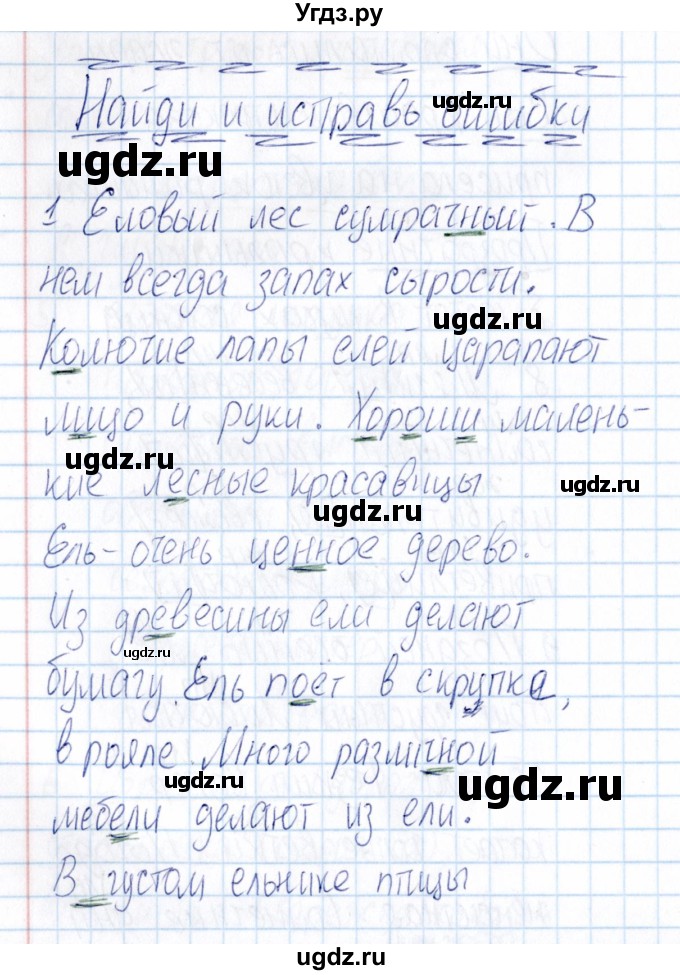 Угдз.ру
Найди и исправь ошибку
ugdz.ru
ugdz.ru
1 Еловый лес сумрачный. В
нем всегда запах сырости.
ugdz.ru
Колючие лапы елей царапают
лицо и руки. Хороши малень-
ugdz.ru
кие лесные красавицы
ugdz.ru
ugdz.ru
Ель - очень ценное дерево.
Из древесины ели делают
ugdz.ru
бумагу. Ель поёт в скрупке,
в рояле. Много различной
ugdz.ru
ugdz.ru
мебели делают из ели.
В густом ельнике птицы
ugdz.ru